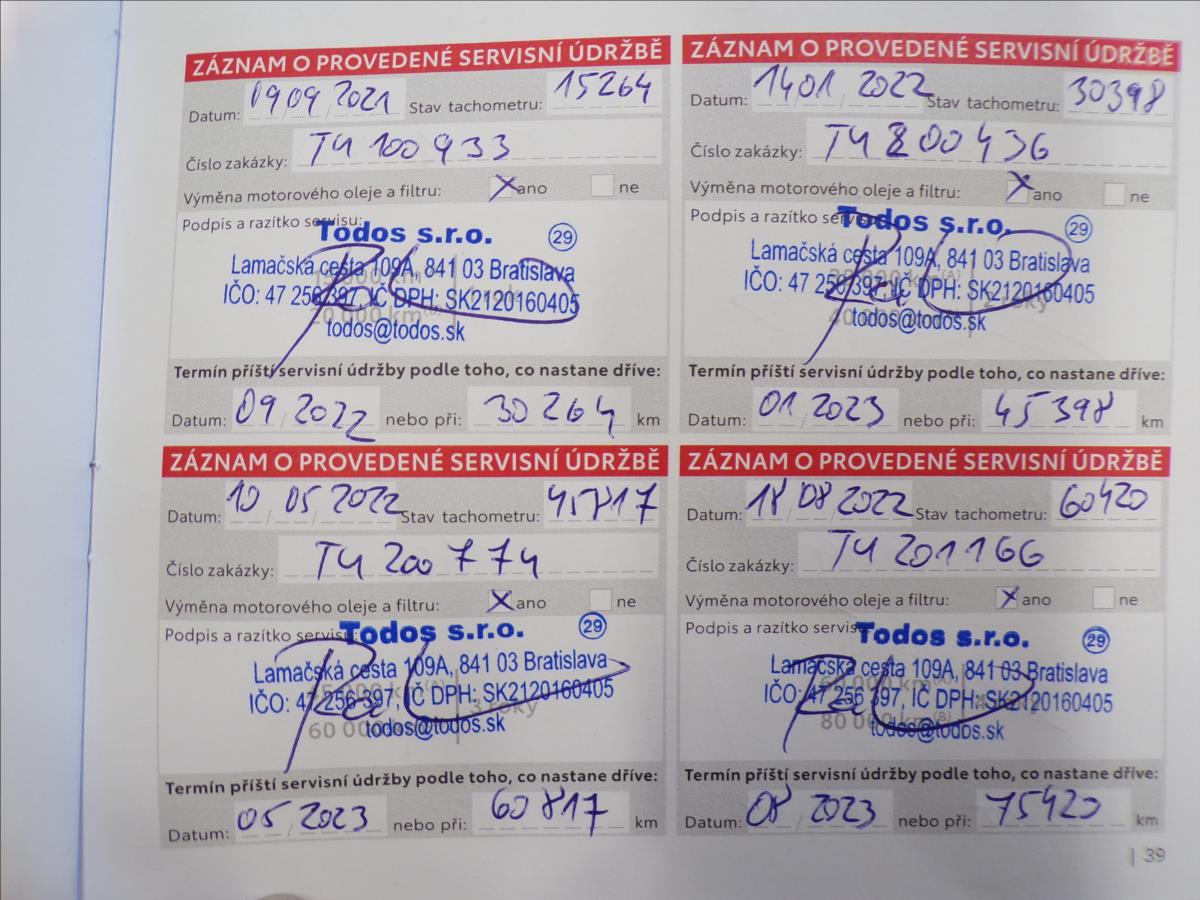 ZÁZNAM O PROVEDENÉ SERVISNÍ ÚDRŽBĚ
Datum: 09 09 2021 Stav tachometru: 15264
Číslo zakázky: T4 100 933
Výměna motorového oleje a filtru: X ano ne
Podpis a razítko servisu:
Todos s.r.o. 29
Lamačská cesta 109A, 841 03 Bratislava
IČO: 47 256 397, IČ DPH: SK2120160405
20 000 km
todos@todos.sk
Termín příští servisní údržby podle toho, co nastane dříve:
Datum: 09 2022 nebo při: 30 264 km
ZÁZNAM O PROVEDENÉ SERVISNÍ ÚDRŽBĚ
Datum: 14 01 2022 Stav tachometru: 30398
Číslo zakázky: T4 200 436
Výměna motorového oleje a filtru: X ano ne
Podpis a razítko servisu:
Todos s.r.o. 29
Lamačská cesta 109A, 841 03 Bratislava
IČO: 47 256 397, IČ DPH: SK2120160405
todos@todos.sk
Termín příští servisní údržby podle toho, co nastane dříve:
Datum: 01 2023 nebo při: 45 398 km
ZÁZNAM O PROVEDENÉ SERVISNÍ ÚDRŽBĚ
Datum: 10 05 2022 Stav tachometru: 45817
Číslo zakázky: T4 200 774
Výměna motorového oleje a filtru: X ano ne
Podpis a razítko servisu:
Todos s.r.o. 29
Lamačská cesta 109A, 841 03 Bratislava
IČO: 47 256 397, IČ DPH: SK2120160405
3 roky
60 000 km
todos@todos.sk
Termín příští servisní údržby podle toho, co nastane dříve:
Datum: 05 2023 nebo při: 60 817 km
ZÁZNAM O PROVEDENÉ SERVISNÍ ÚDRŽBĚ
Datum: 18 08 2022 Stav tachometru: 60420
Číslo zakázky: T4 201166
Výměna motorového oleje a filtru: X ano ne
Podpis a razítko servisu:
Todos s.r.o. 29
Lamačská cesta 109A, 841 03 Bratislava
IČO: 47 256 397, IČ DPH: SK2120160405
80 000 km
todos@todos.sk
Termín příští servisní údržby podle toho, co nastane dříve:
Datum: 08 2023 nebo při: 75420 km
| 39